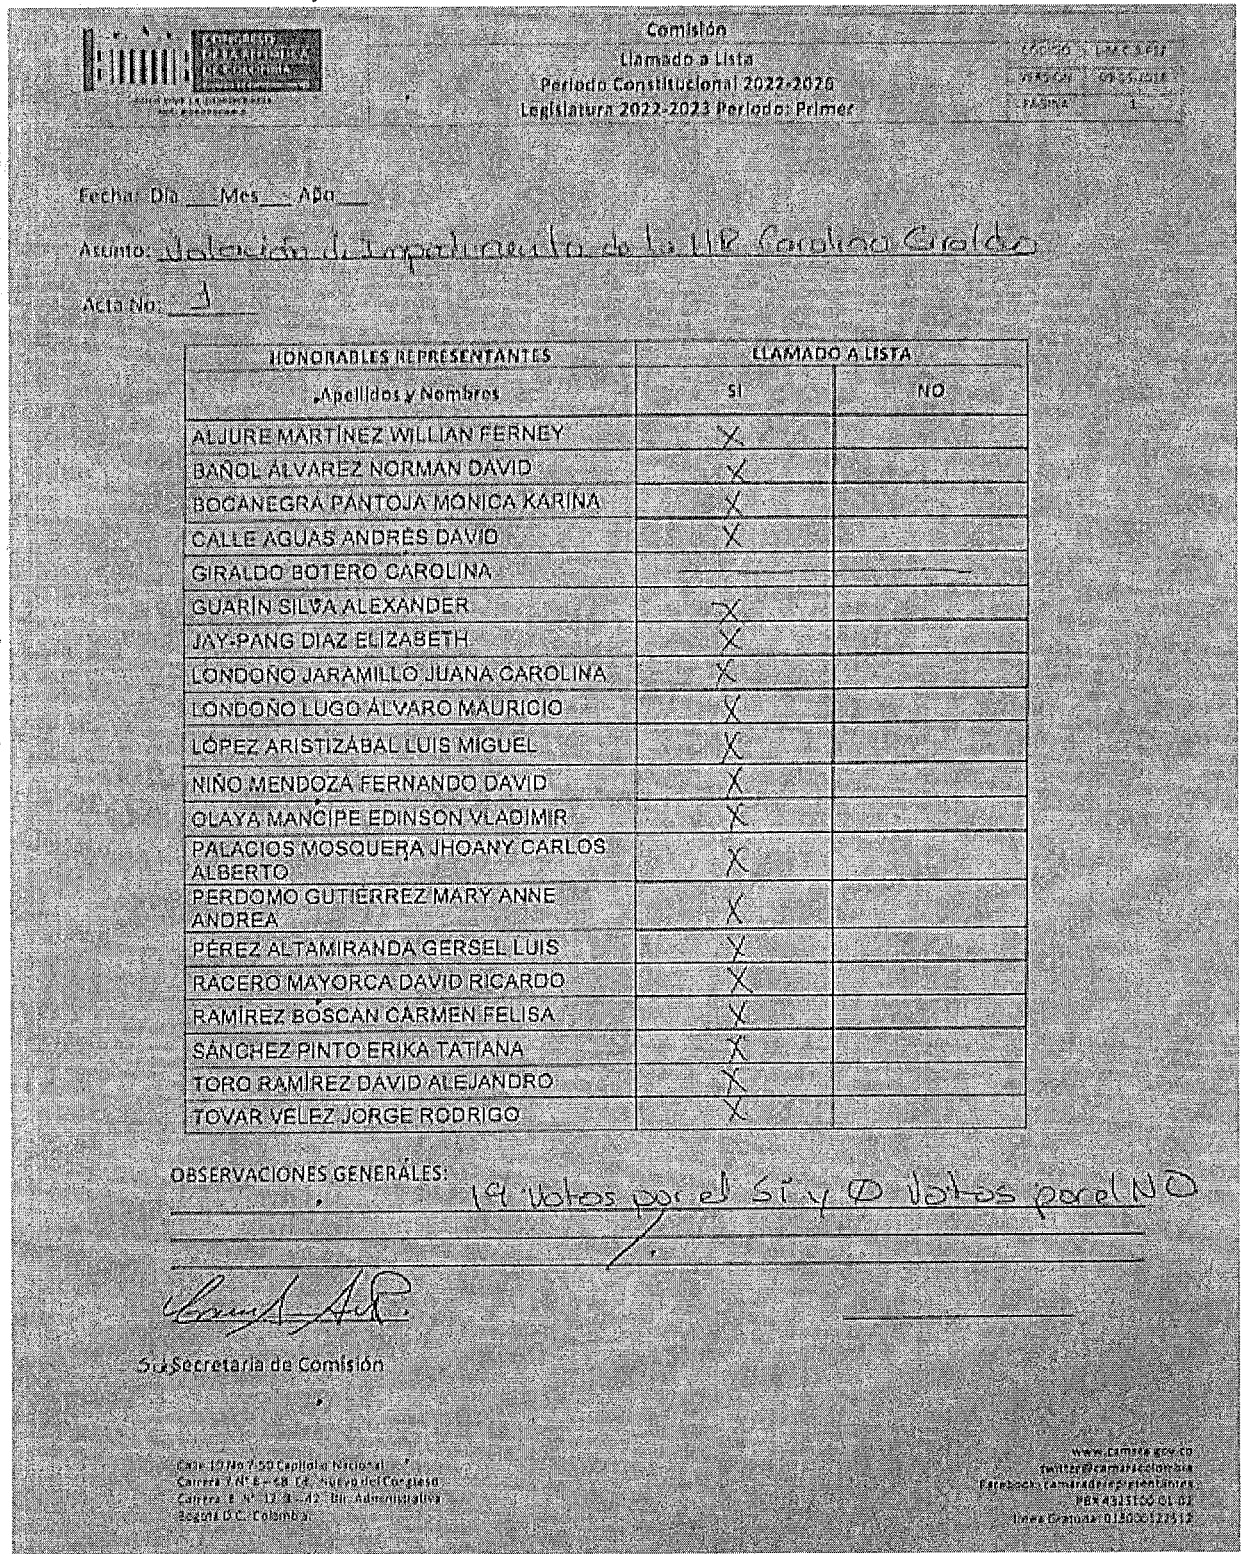 CONGRESO
DE LA REPÚBLICA
DE COLOMBIA
AQUÍ VIVE LA DEMOCRACIA
Comisión
Llamado a Lista
Periodo Constitucional 2022-2026
Legislatura 2022-2023 Periodo: Primer
CÓDIGO
VERSIÓN
PÁGINA 1
Fecha: Día ___ Mes ___ Año ___
Asunto: Votación de Impedimento de la HR Carolina Giraldo
Acta No: 1
HONORABLES REPRESENTANTES LLAMADO A LISTA
Apellidos y Nombres SI NO
ALJURE MARTÍNEZ WILLIAN FERNEY X
BAÑOL ÁLVAREZ NORMAN DAVID X
BOCANEGRA PANTOJA MÓNICA KARINA X
CALLE AGUAS ANDRÉS DAVID X
GIRALDO BOTERO CAROLINA
GUARÍN SILVA ALEXANDER X
JAY-PANG DIAZ ELIZABETH X
LONDOÑO JARAMILLO JUANA CAROLINA X
LONDOÑO LUGO ÁLVARO MAURICIO X
LÓPEZ ARISTIZÁBAL LUIS MIGUEL X
NIÑO MENDOZA FERNANDO DAVID X
OLAYA MANCIPE EDINSON VLADIMIR X
PALACIOS MOSQUERA JHOANY CARLOS
ALBERTO X
PERDOMO GUTIÉRREZ MARY ANNE
ANDREA X
PÉREZ ALTAMIRANDA GERSEL LUIS X
RACERO MAYORCA DAVID RICARDO X
RAMÍREZ BOSCÁN CARMEN FELISA X
SÁNCHEZ PINTO ERIKA TATIANA X
TORO RAMÍREZ DAVID ALEJANDRO X
TOVAR VÉLEZ JORGE RODRIGO X
OBSERVACIONES GENERALES:
19 Votos por el SI y 0 Votos por el NO
Secretaria de Comisión
Calle 10 No 7-50 Capitolio Nacional
Carrera 7 N° 8 – 68 Ed. Nuevo del Congreso
Carrera 8 N° 12 B - 42 Dir. Administrativa
Bogotá D.C. Colombia
www.camara.gov.co
twitter@camaracolombia
Facebook: camaraderepresentantes
PBX 4325100-01-02
Línea Gratuita: 018000122512